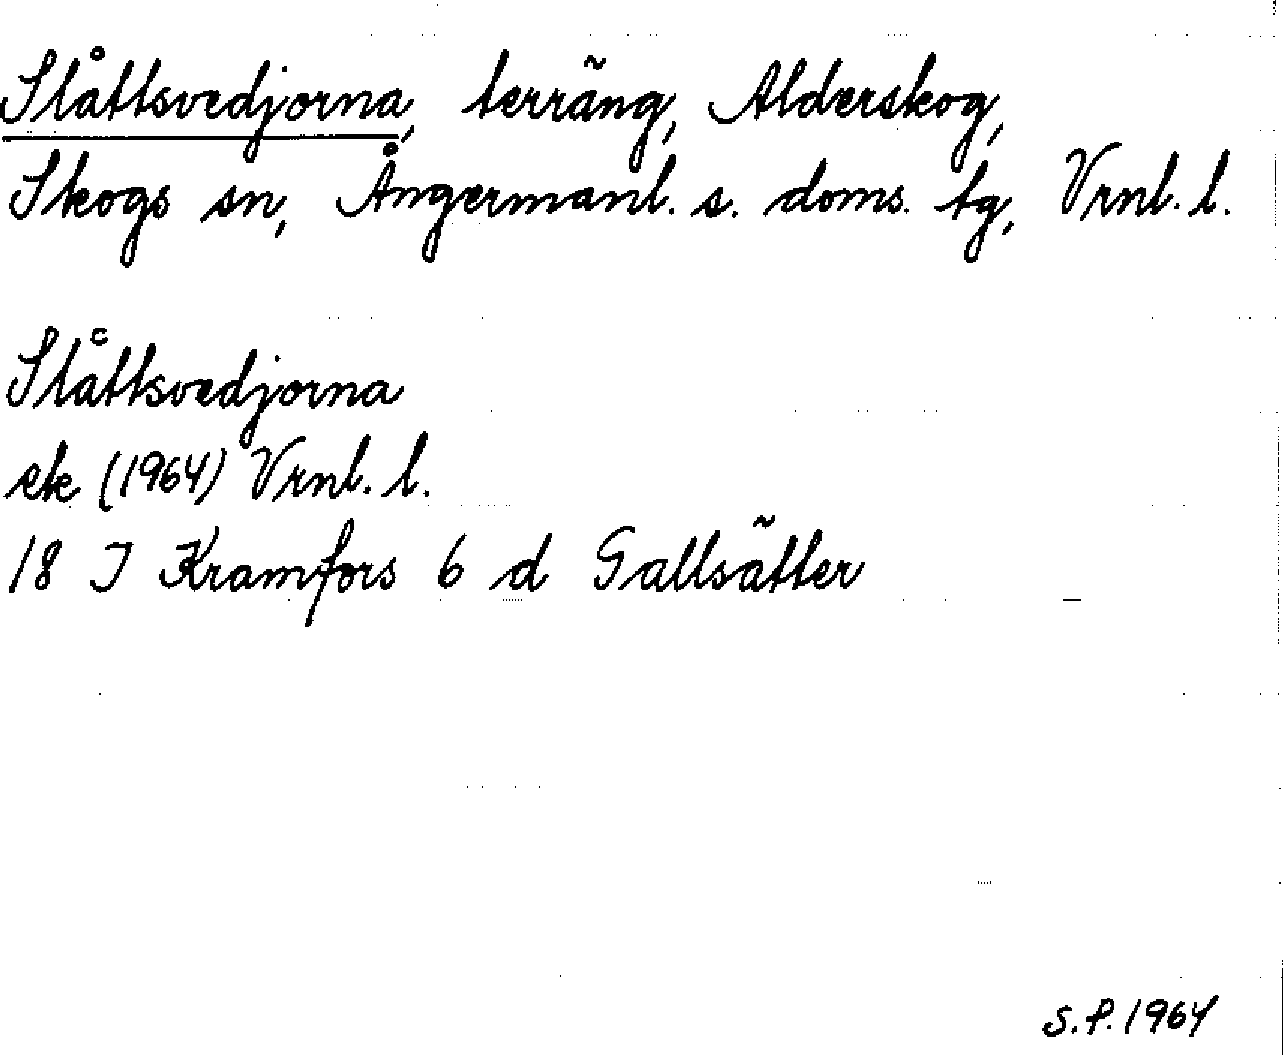 Slåttsvedjorna, terräng, Alderskog,
Skogs sn, Ångermanl. s. doms. tg, Vrnl. l.
Slåttsvedjorna
ek (1964) Vrnl. l.
18 I Kramfors 6 d Gallsätter
S.P. 1964